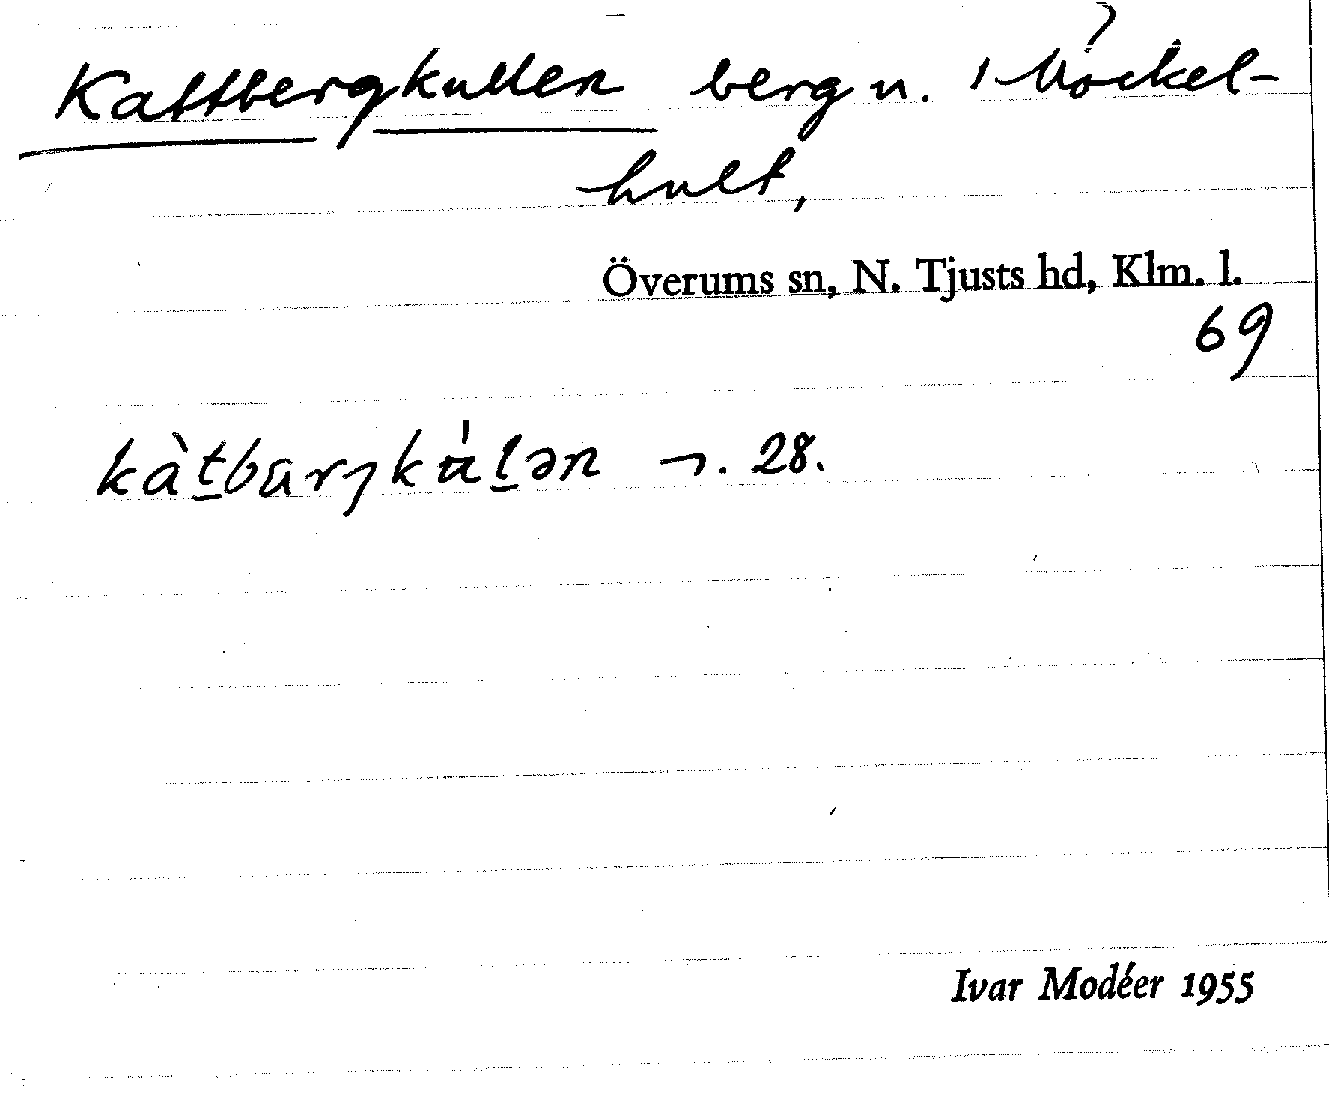 Kattbergkullen berg n. 1 Möckel-
hult,
Överums sn, N. Tjusts hd, Klm. l.
69
28.
Ivar Modéer 1955